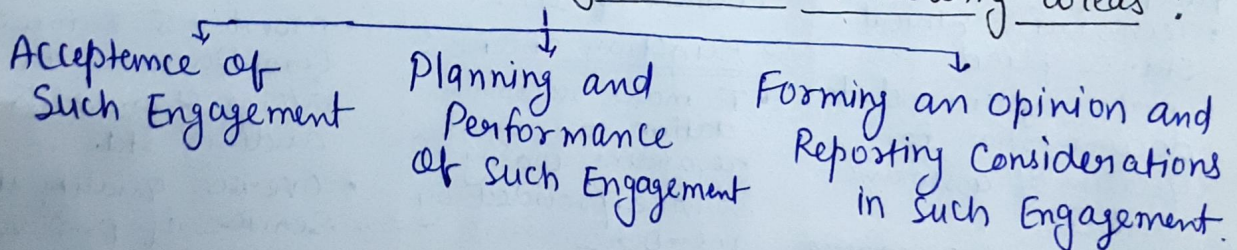 areas.
Acceptemce of
Such Engagement
Planning and
Performance
of Such Engagement
Forming an opinion and
Reporting Considerations
in such Engagement.